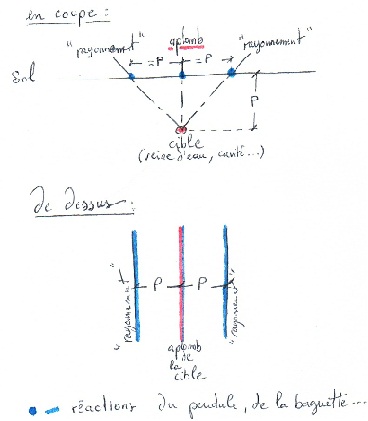 en coupe :
"rayonnement"
aplomb
"rayonnement"
= P
= P
Sol
P
cible
(veine d'eau, cavité...)
De dessus :
"rayonnement"
P
P
"rayonnement"
aplomb
de
la
cible
réactions du pendule, de la baguette...